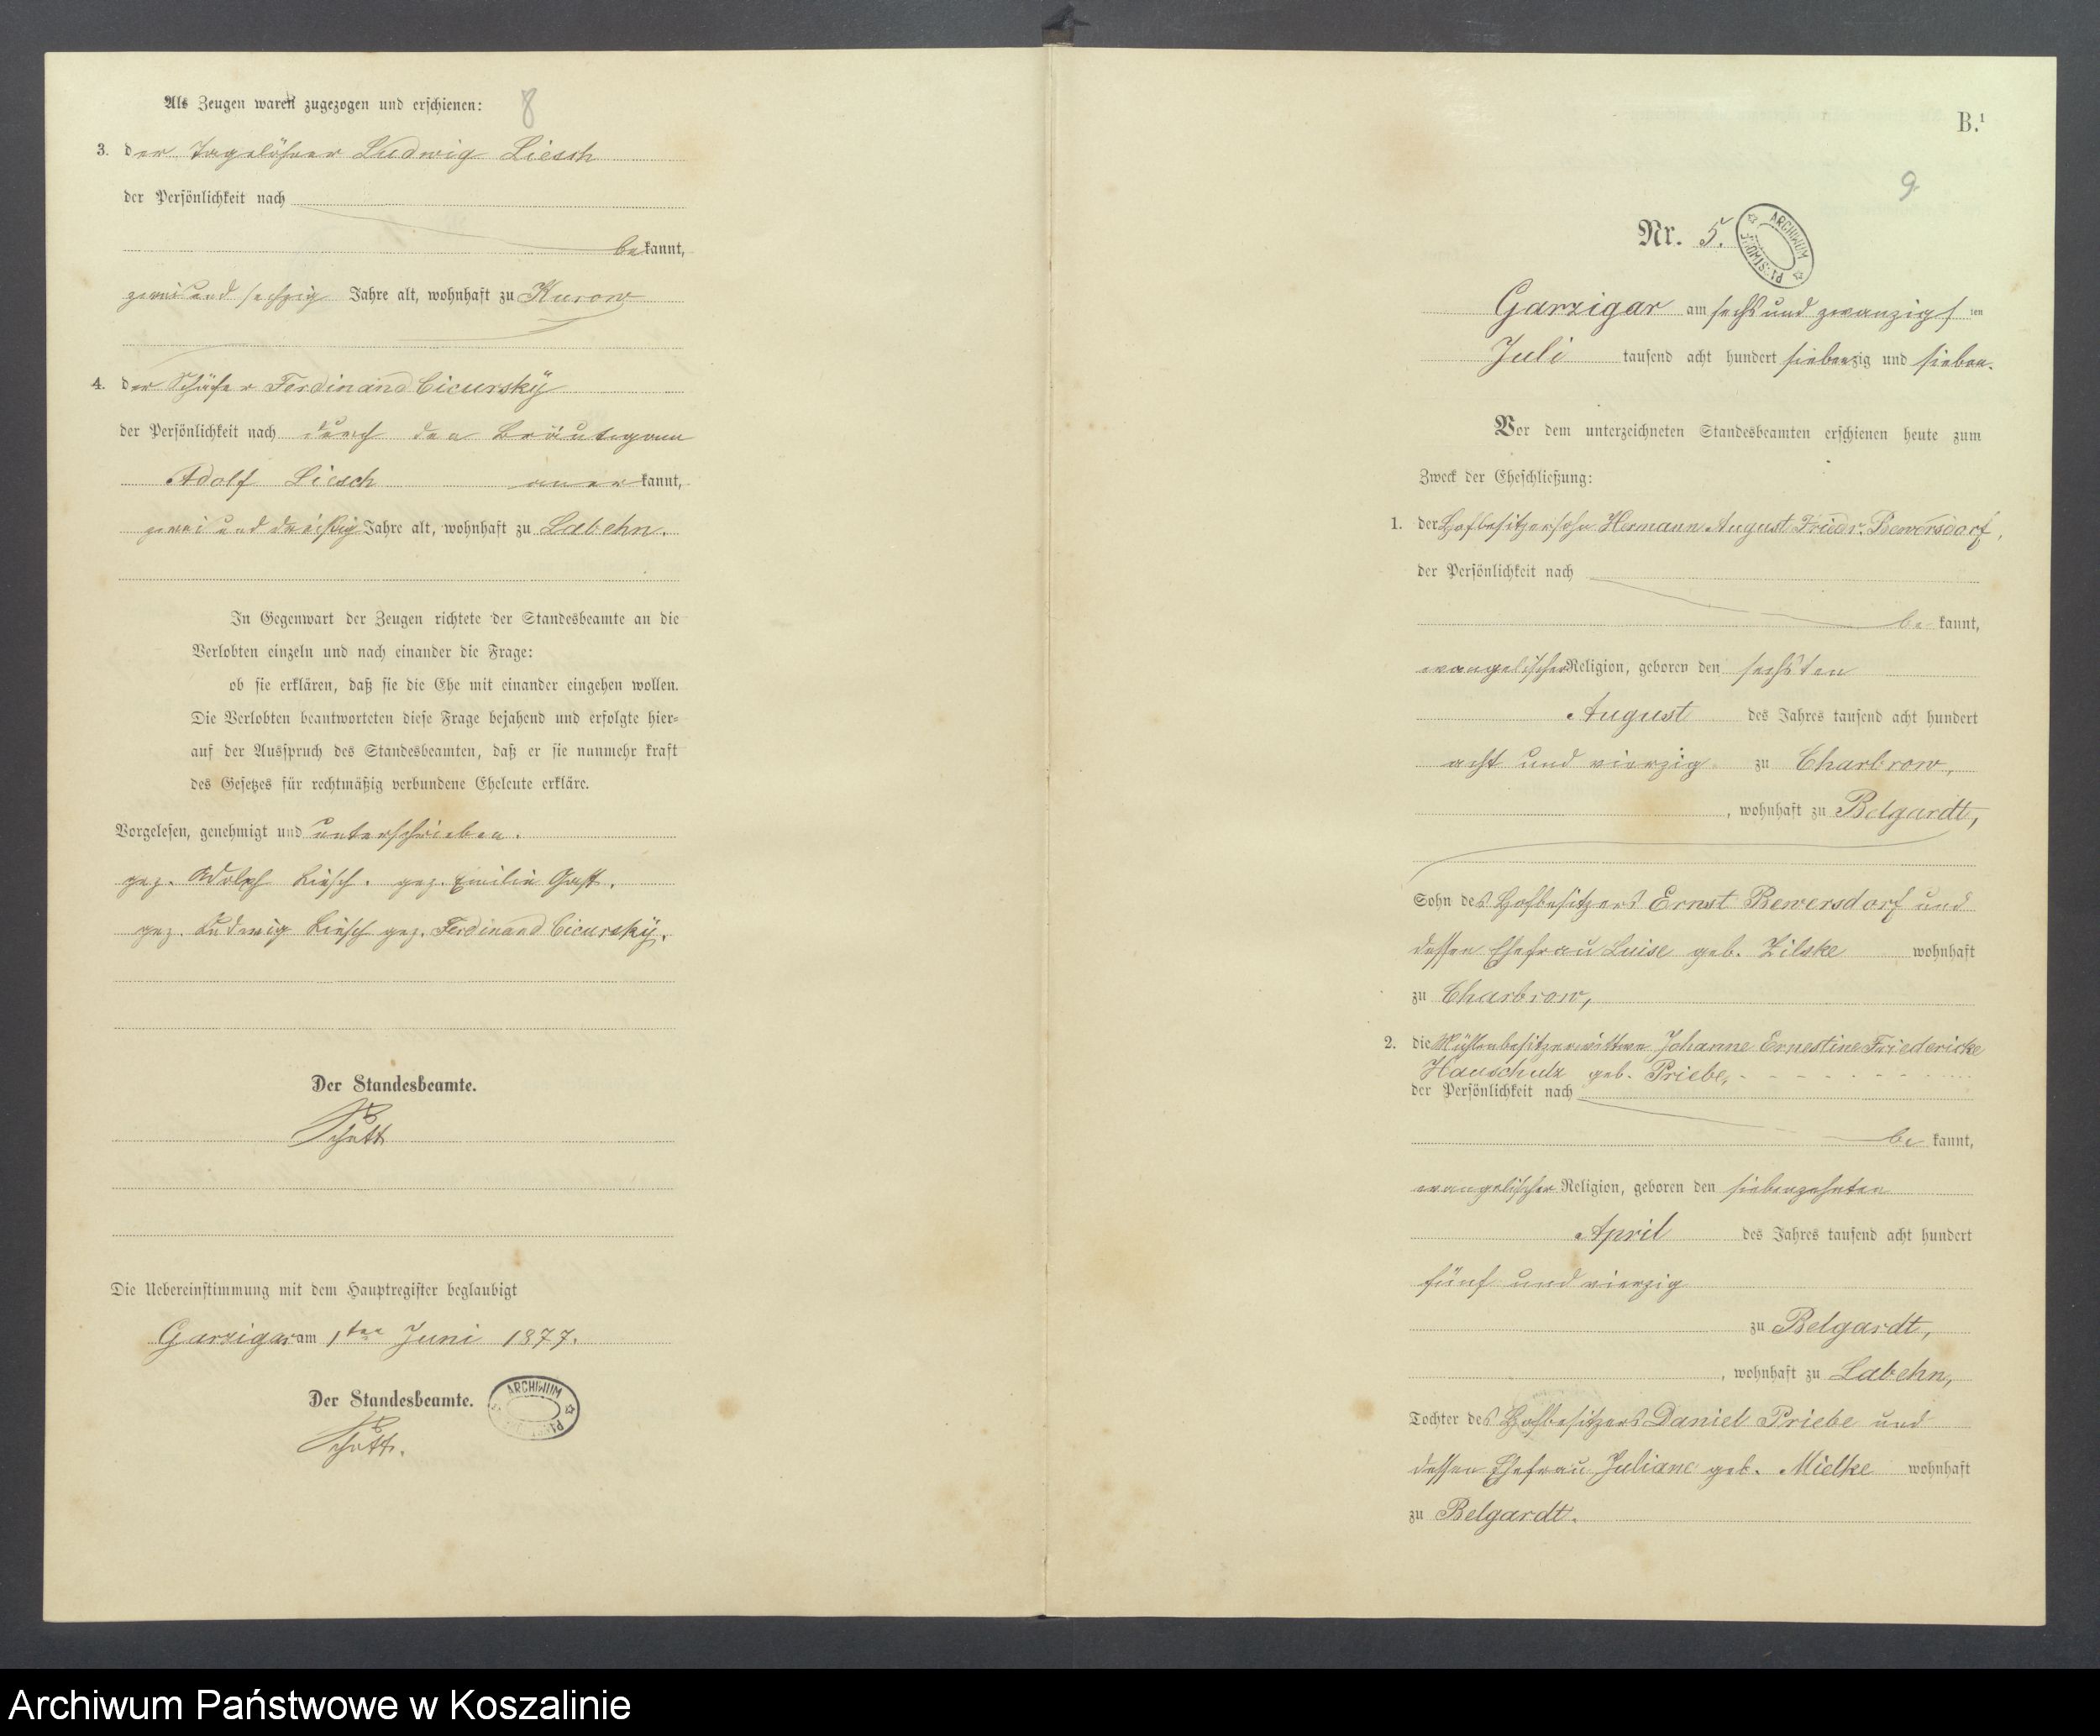 Als Zeugen waren zugezogen und erschienen:
8
3. der Tagelöhner Ludwig Liesch
der Persönlichkeit nach
bekannt,
zwei und sechzig Jahre alt, wohnhaft zu Kurow
4. der Schäfer Ferdinand Cicursky
der Persönlichkeit nach durch den Bräutigam
Adolf Liesch anerkannt,
zwei und dreißig Jahre alt, wohnhaft zu Labehn.
In Gegenwart der Zeugen richtete der Standesbeamte an die
Verlobten einzeln und nach einander die Frage:
ob sie erklären, daß sie die Ehe mit einander eingehen wollen.
Die Verlobten beantworteten diese Frage bejahend und erfolgte hier-
auf der Ausspruch des Standesbeamten, daß er sie nunmehr kraft
des Gesetzes für rechtmäßig verbundene Eheleute erkläre.
Vorgelesen, genehmigt und unterschrieben.
gez. Adolph Liesch. gez. Emilie Gast.
gez. Ludwig Liesch gez. Ferdinand Cicursky.
Der Standesbeamte.
Die Uebereinstimmung mit dem Hauptregister beglaubigt
Garzigar am 1ten Juni 1877.
Der Standesbeamte.
ARCHIWUM
B.1
9
Nr. 5.
ARCHIWUM
Garzigar am sechs und zwanzigsten
Juli tausend acht hundert siebenzig und sieben.
Vor dem unterzeichneten Standesbeamten erschienen heute zum
Zweck der Eheschließung:
1. der Hofbesitzersohn Hermann August Friedr. Bewersdorf,
der Persönlichkeit nach
be kannt,
evangelischer Religion, geboren den sechsten
August des Jahres tausend acht hundert
acht und vierzig zu Charbrow,
, wohnhaft zu Belgardt,
Sohn des Hofbesitzers Ernst Bewersdorf und
dessen Ehefrau Luise geb. Zilske wohnhaft
zu Charbrow,
2. die Mühlenbesitzerwittwe Johanne Ernestine Friedericke
Hauschulz geb. Priebe,
der Persönlichkeit nach
be kannt,
evangelischer Religion, geboren den siebenzehnten
April des Jahres tausend acht hundert
fünf und vierzig
zu Belgardt,
, wohnhaft zu Labehn,
Tochter des Hofbesitzers Daniel Priebe und
dessen Ehefrau Juliane geb. Mielke wohnhaft
zu Belgardt.
Archiwum Państwowe w Koszalinie